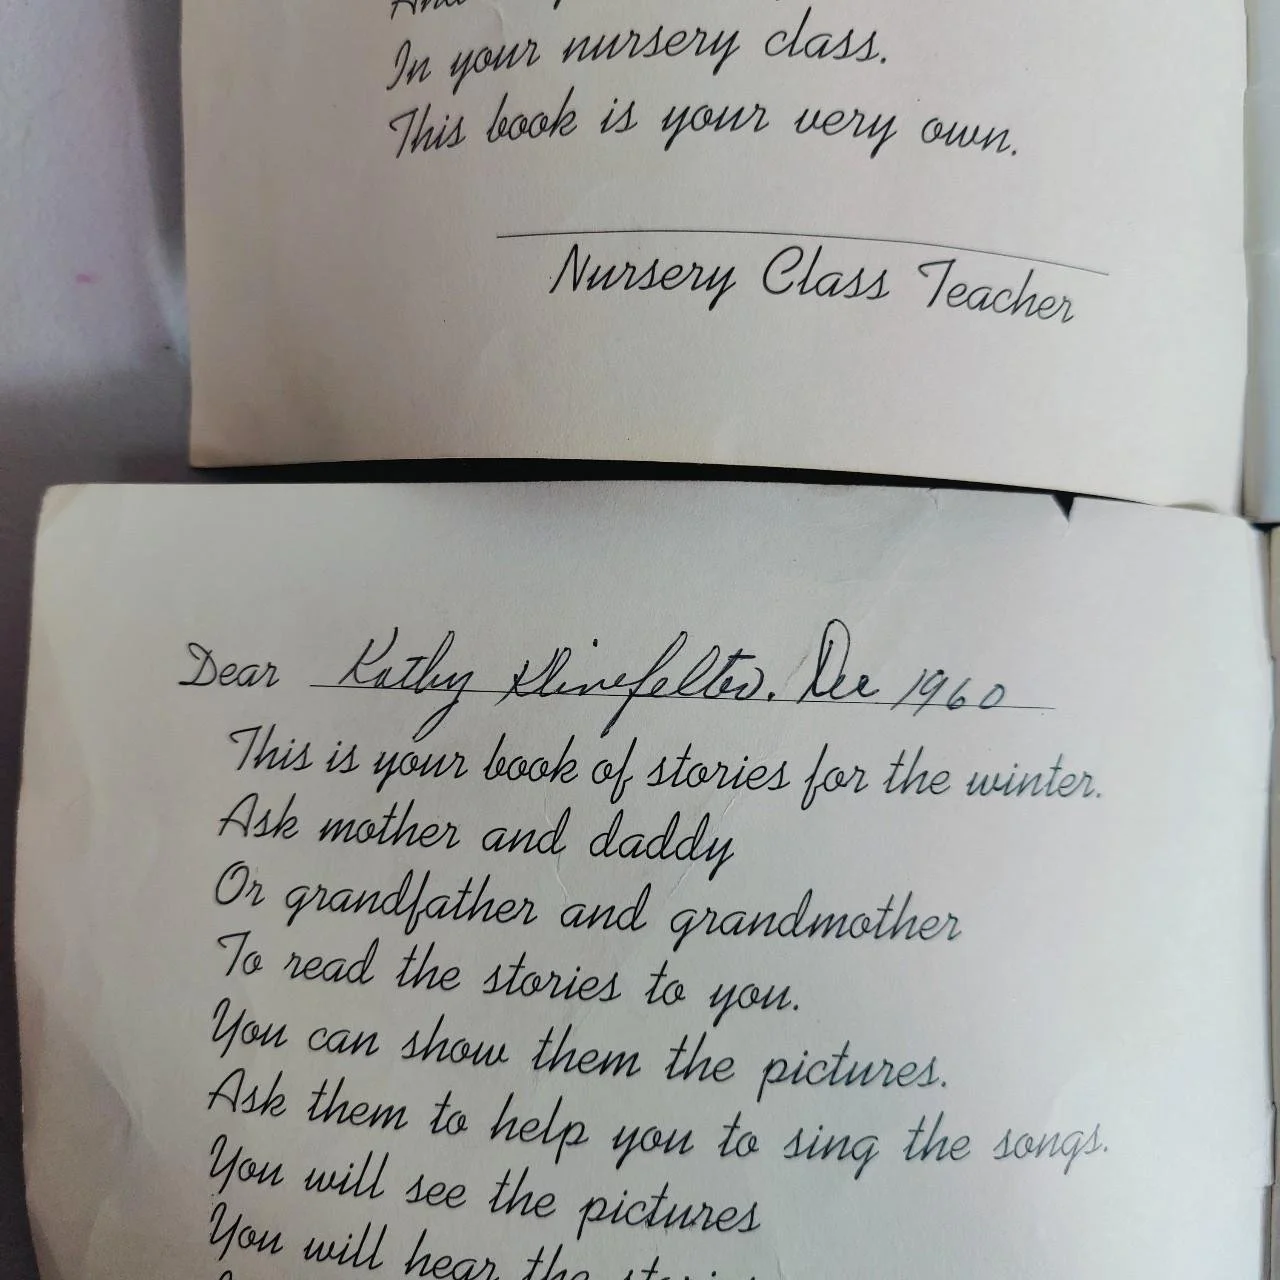 In your nursery class.
This book is your very own.
Nursery Class Teacher
Dear Kathy Klinefelter. Dec 1960
This is your book of stories for the winter.
Ask mother and daddy
Or grandfather and grandmother
To read the stories to you.
You can show them the pictures.
Ask them to help you to sing the songs.
You will see the pictures
You will hear the